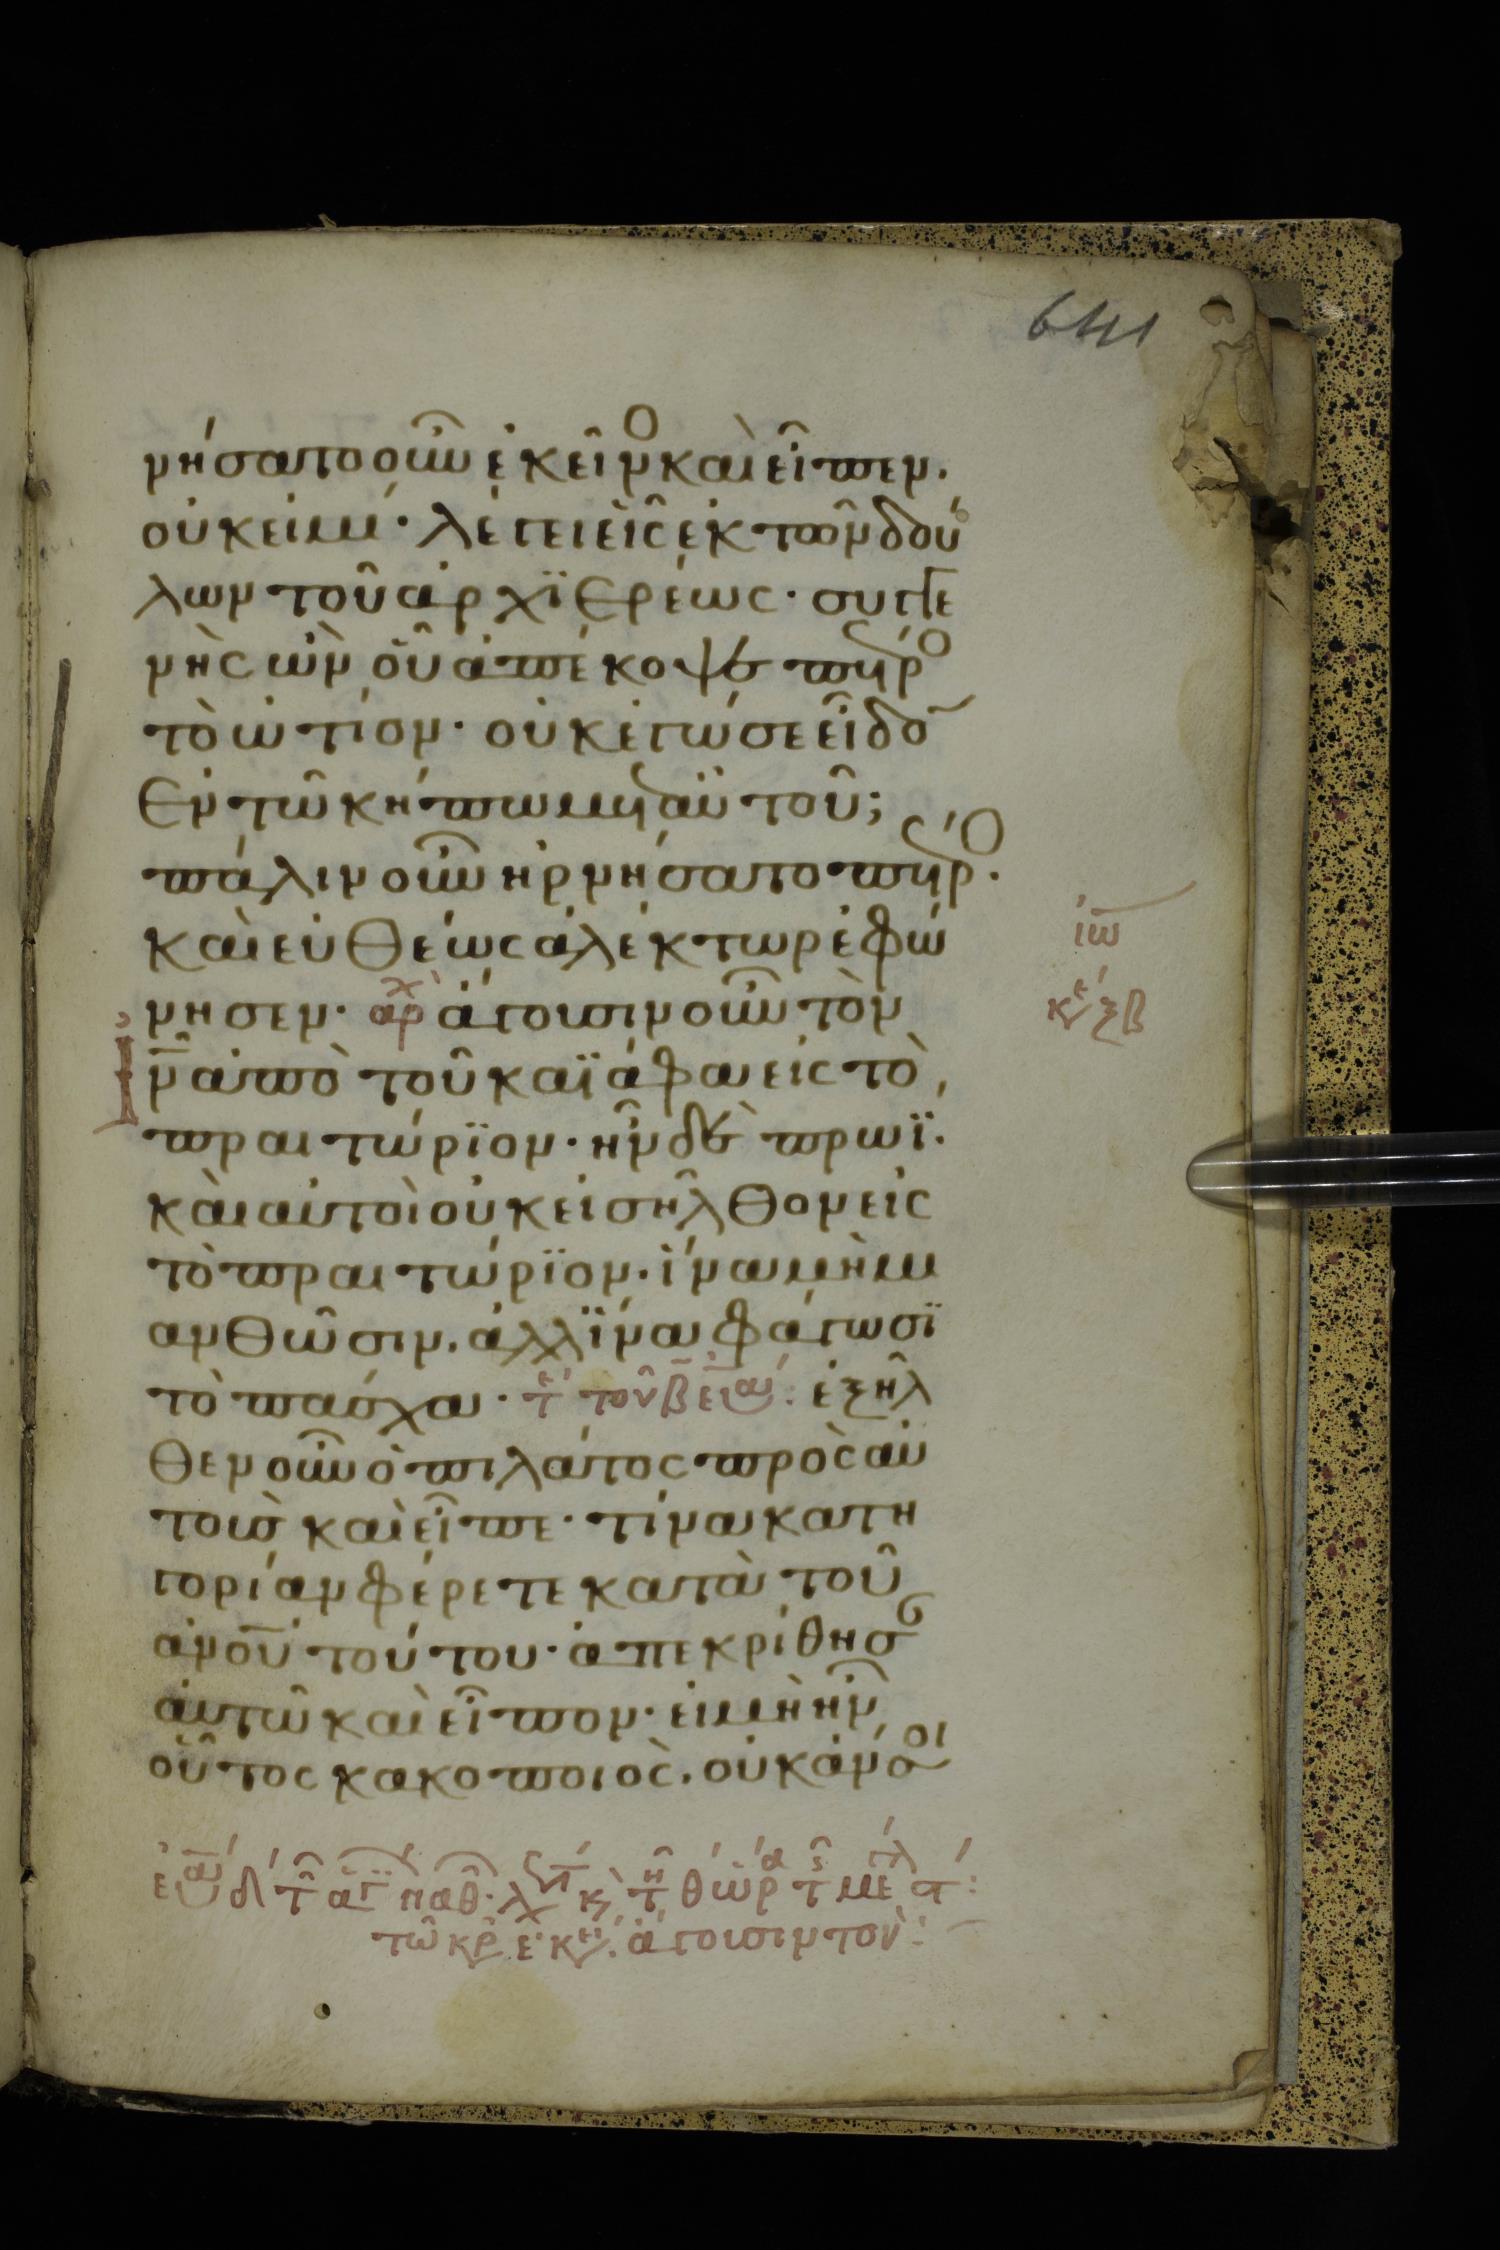 641
νήσατο οὖν ἐκεῖνο καὶ εἶπεν.
οὐκ εἰμί· λέγει εἷς ἐκ τῶν δού
λων τοῦ ἀρχϊερέως· συγγε
νὴς ὢν οὗ ἀπέκοψε πέτρο
τὸ ὠτίον· οὐκ ἐγώ σε εἶδο
ἐν τῶ κήπω μετ αὐτοῦ;
πάλιν οὖν ἠρνήσατο πέτρο.
καὶ εὐθέως ἀλέκτωρ ἐφώ
νησεν· ἀρχ ἄγουσιν οὖν τὸν
ιν ἀπὸ τοῦ καϊάφα εἰς τὸ
πραιτώρϊον· ἦν δὲ πρωΐ.
καὶ αὐτοὶ οὐκ εἰσῆλθον εἰς
τὸ πραιτώρϊον. ἵνα μὴ μι
ανθῶσιν. ἀλλ ΐνα φάγωσϊ
τὸ πάσχα· ἐξῆλ
θεν οὖν ὁ πιλάτος πρὸς αὐ
τοὺς καὶ εἶπε· τίνα κατη
γορίαν φέρετε κατὰ τοῦ
ἀνου τούτου· ἀπεκρίθησ
αὐτῶ καὶ εἶπον· εἰ μὴ ἦν
οὗτος κακοποιὸς. οὐκ ἄν σοι
ιω
κε ξβ
τῶ κρ ε κε. ἄγουσιν τὸν: